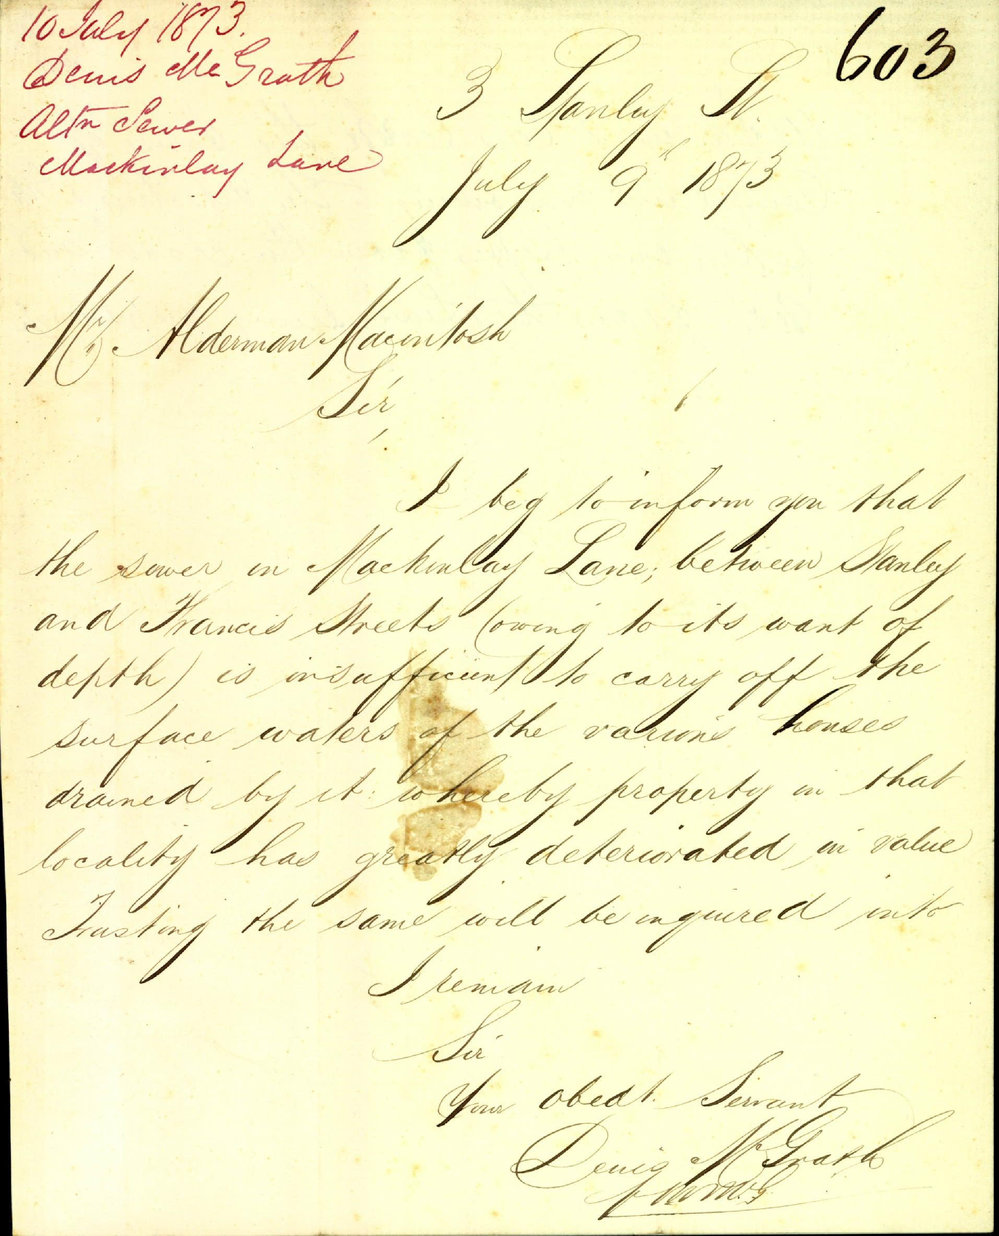 10 July 1873.
Denis McGrath
Altn Sewer
Mackinlay Lane
603
3 Stanley St.
July 9th 1873
Mr Alderman Macintosh
Sir,
I beg to inform you that
the sewer in Mackinlay Lane; between Stanley
and Francis Streets (owing to its want of
depth) is insufficient to carry off the
surface waters of the various houses
drained by it: whereby property in that
locality has greatly deteriorated in value
Trusting the same will be inquired into
I remain
Sir
Your obedt. Servant
Denis McGrath